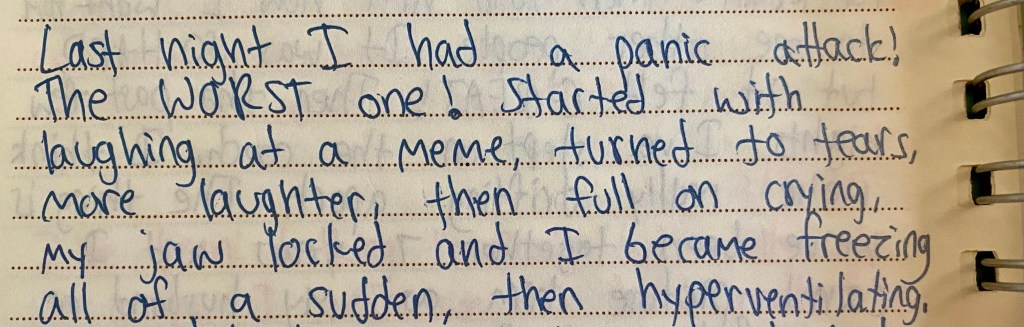 Last night I had a panic attack!
The WORST one! Started with
laughing at a meme, turned to tears,
more laughter, then full on crying,
my jaw locked and I became freezing
all of a sudden, then hyperventilating.